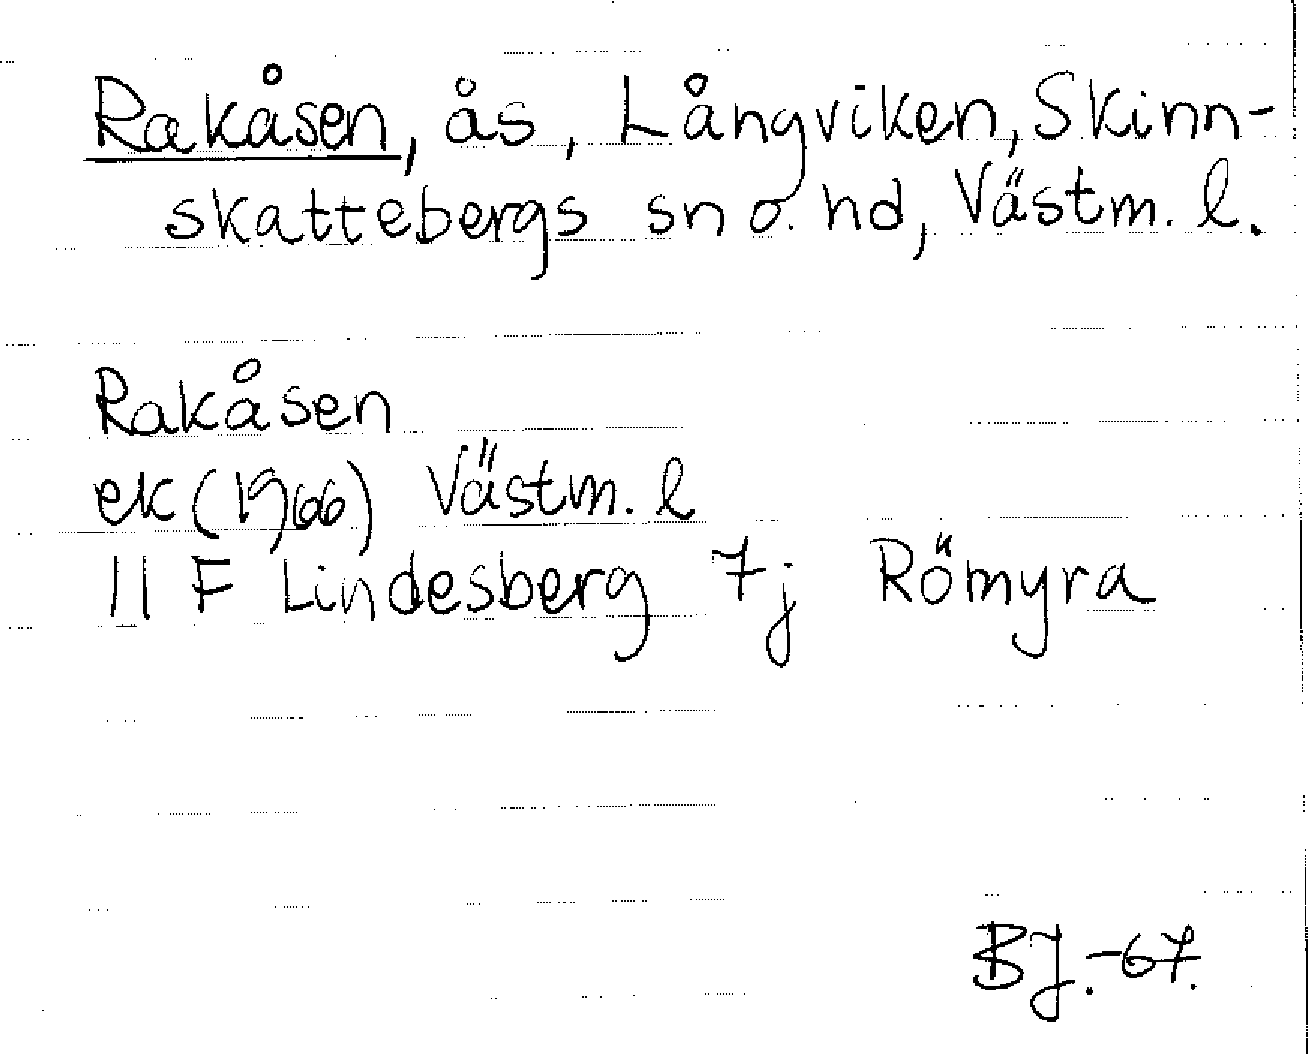 Rakåsen, ås, Långviken, Skinn-
skattebergs sn o. hd, Västm. l.
Rakåsen
ek (1966) Västm. l
11 F Lindesberg 7j Römyra
BJ.-67.